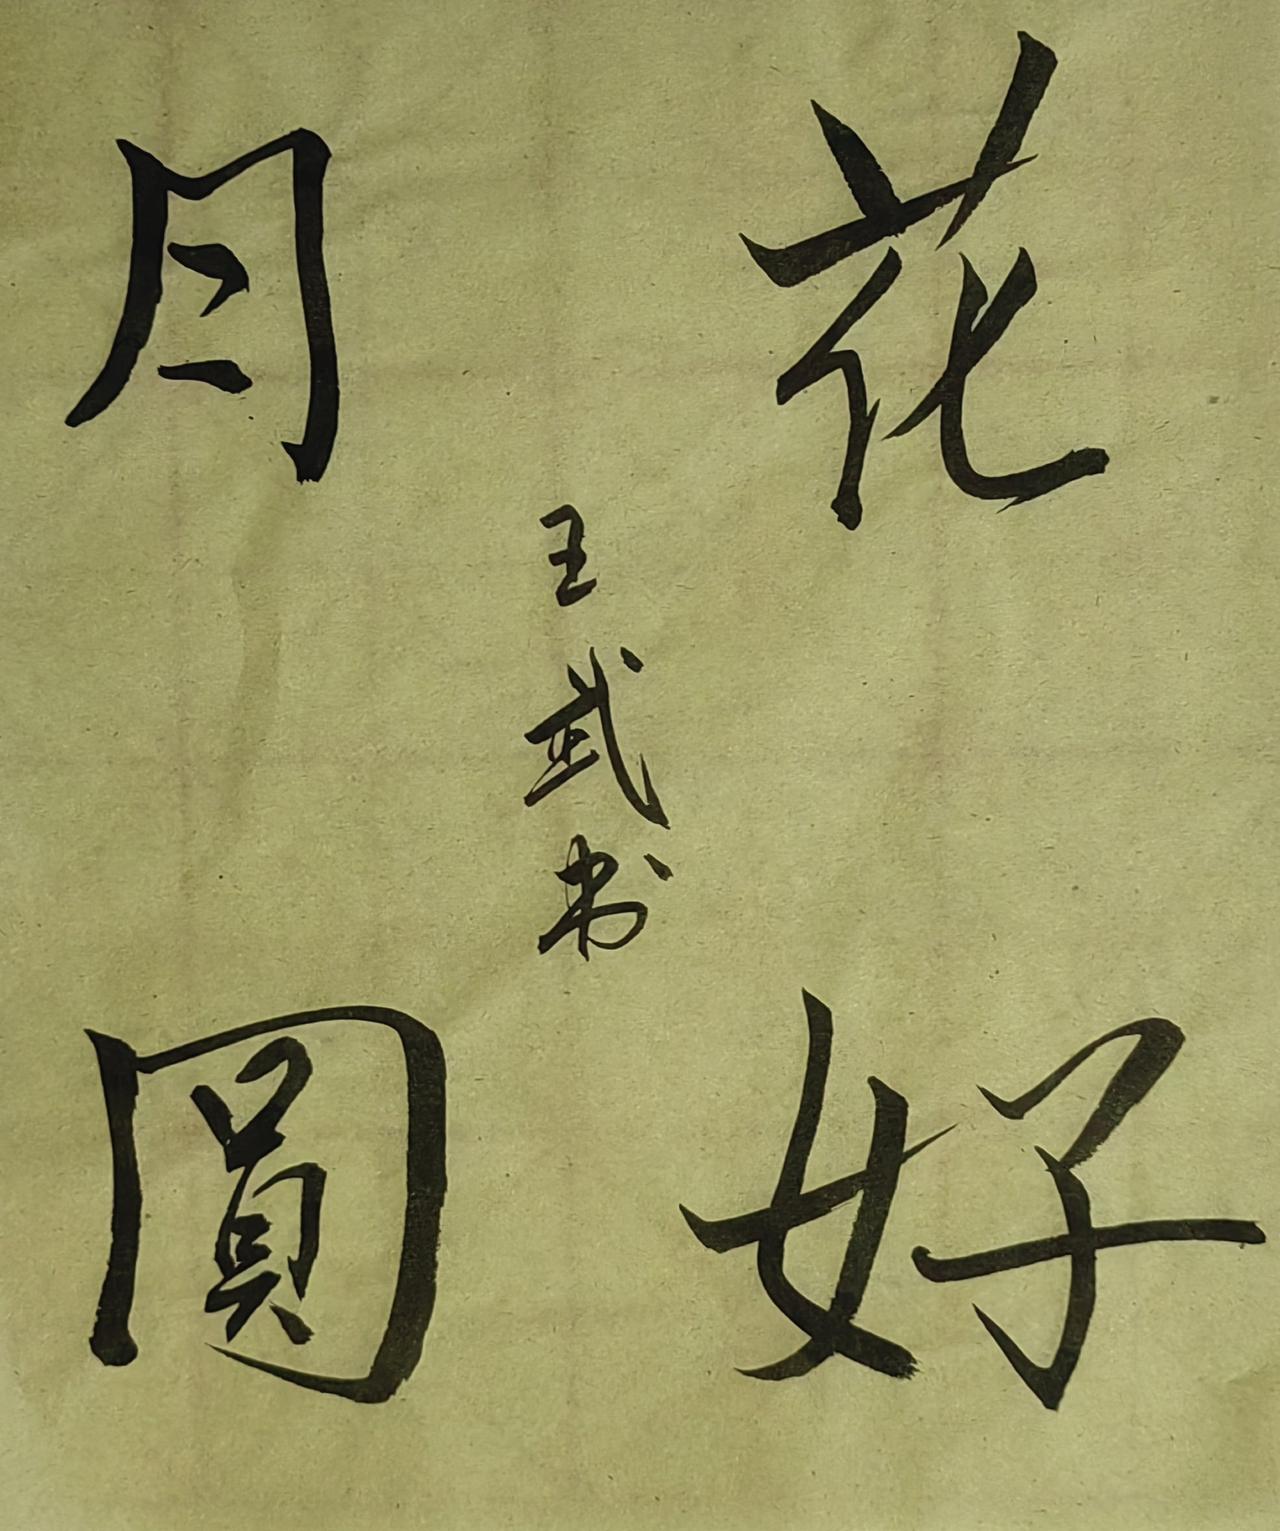 花好
月圓
王武书